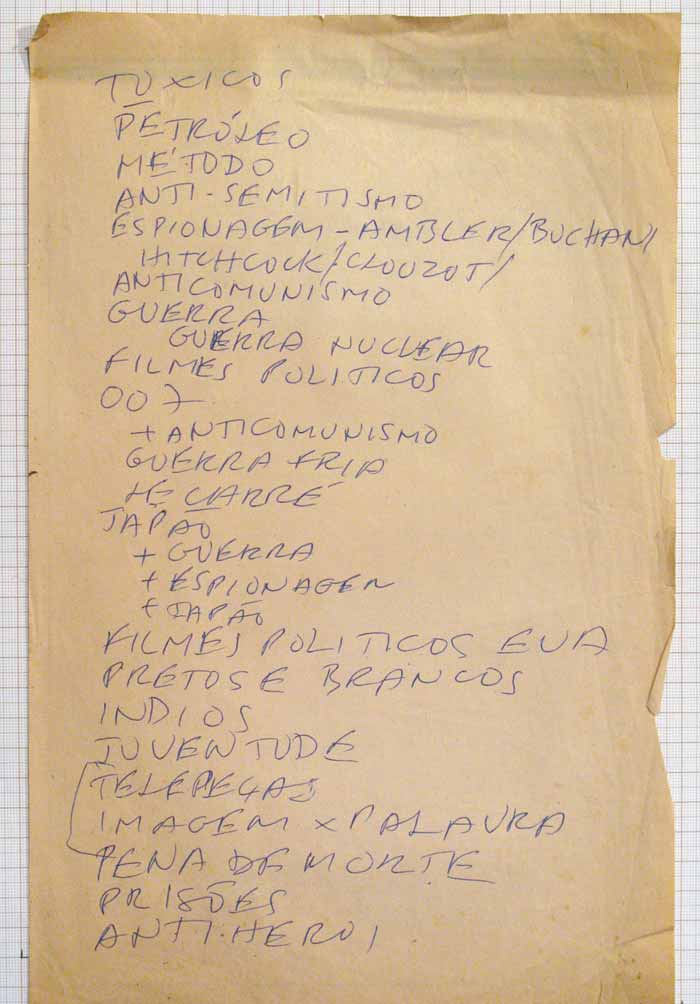 TÓXICOS
PETRÓLEO
MÉTODO
ANTI-SEMITISMO
ESPIONAGEM - AMBLER/BUCHAN/
HITCHCOCK/CLOUZOT/
ANTICOMUNISMO
GUERRA
GUERRA NUCLEAR
FILMES POLITICOS
007
+ ANTICOMUNISMO
GUERRA FRIA
LE CARRÉ
JAPÃO
+ GUERRA
+ ESPIONAGEM
+ JAPÃO
FILMES POLITICOS EUA
PRETOS E BRANCOS
INDIOS
JUVENTUDE
TELEPEÇAS
IMAGEM x PALAVRA
PENA DE MORTE
PRISÕES
ANTI-HEROI